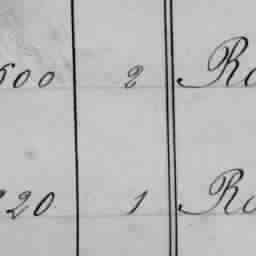 500 2 Ro
220 1 Ro